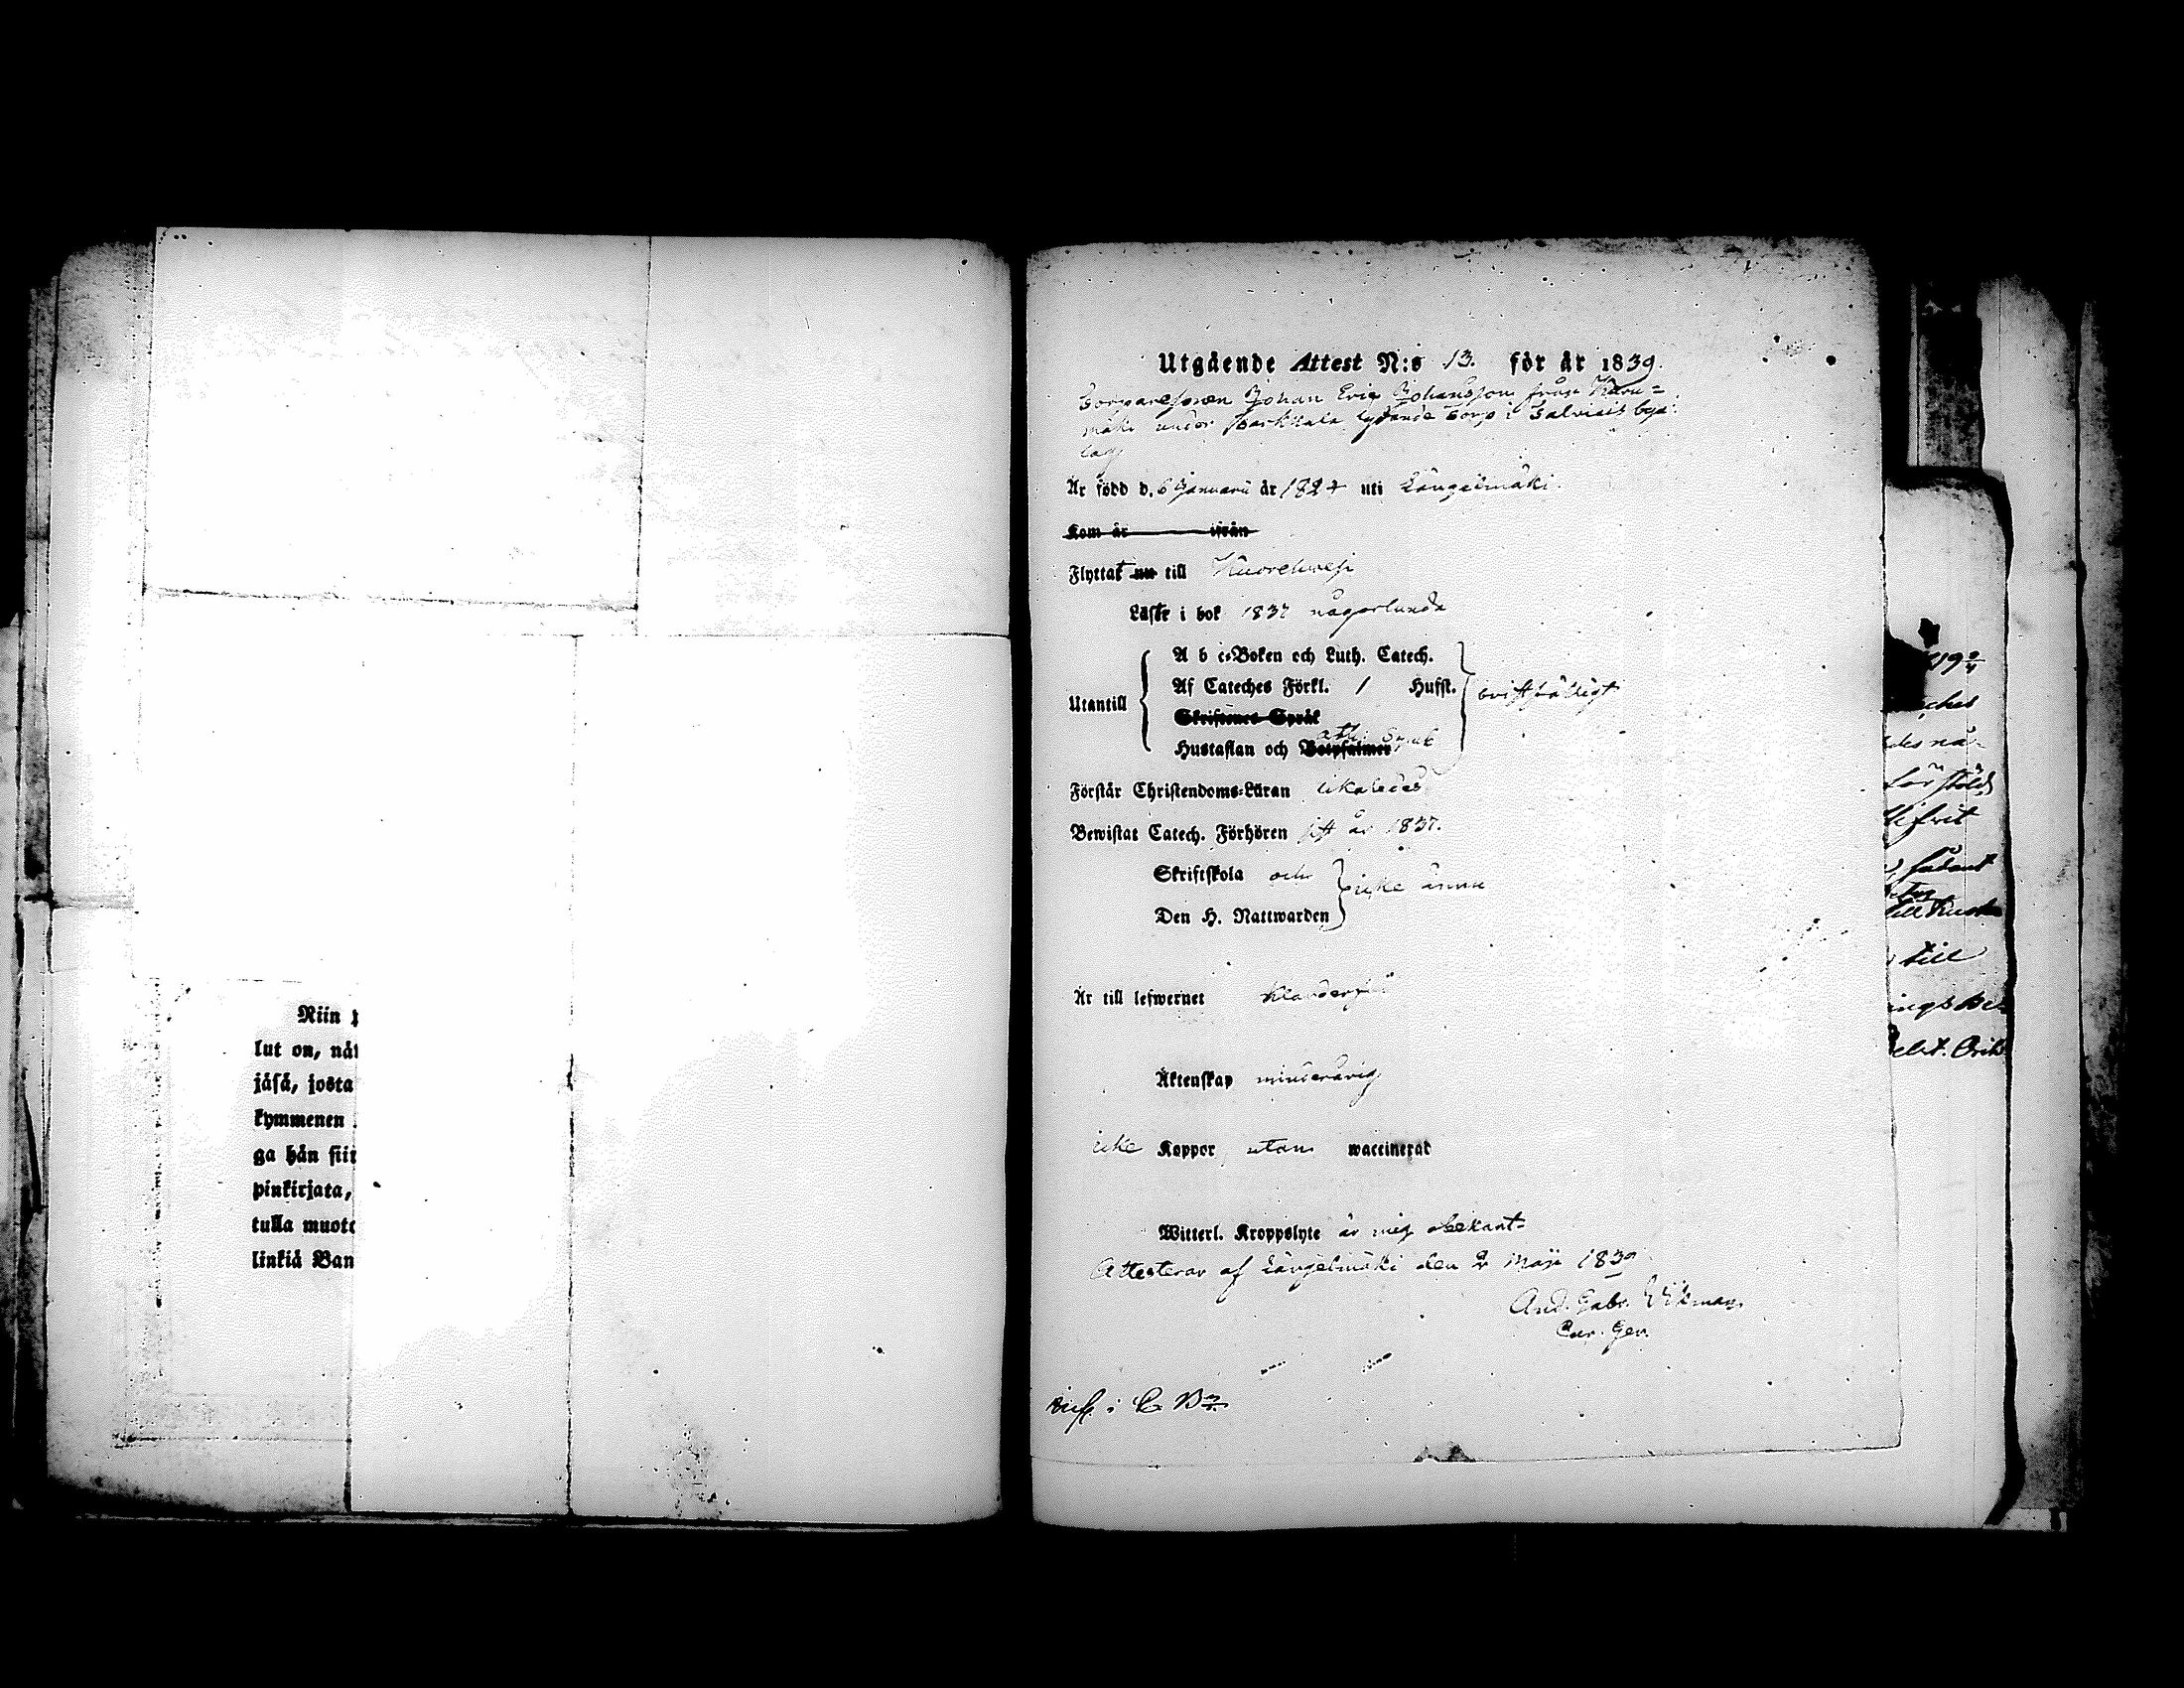 Niin
lut on, nåt
jåså, josta
kymmenen
ga hån siit
pinkirjata,
tulla muoto
linkiå Ban
Utgående Attest N:o 13. för år 1839.
Torparesonen Johan Eric Johansson från
mäki under lydande torp i Talviais bya
lag
Är född d. 6 Januarii år 1824 uti Längelmäki.
Kom år ifrån
Flyttat nu till Kuorehvesi
Läste i bok 1837 någorlunda
Utantill
A b c-Boken och Luth. Catech.
Af Cateches Förkl. / Hufst.
Skriftenes Språk
Hustaflan och Botpsalmer
bristfälligt
Förstår Christendoms-Läran likaledes
Bewistat Catech. Förhören sist år 1837.
Skriftskola och
Den H. Nattwarden
icke ännu
Är till lefwernet
Äktenskap minderårig
icke Koppor utan waccinerad
Witterl. Kroppslyte är mig obekant-
Attesterar af Längelmäki den 2 Maji 1839
And. Gabr. Wikman
till